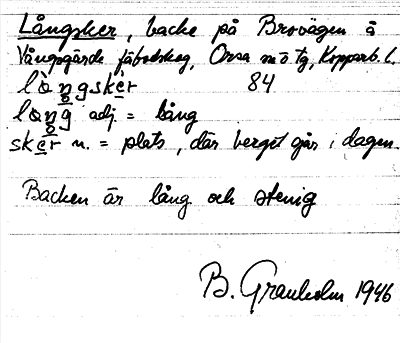 Långsker, backe på Brovägen å
Vångsgärde fäbodskog, Orsa sn o tg, Kopparb. l.
lån̥gskèr 84
lång adj. = lång
skèr n. = plats, där berget går i dagen.
Backen är lång och stenig
B. Granholm 1946